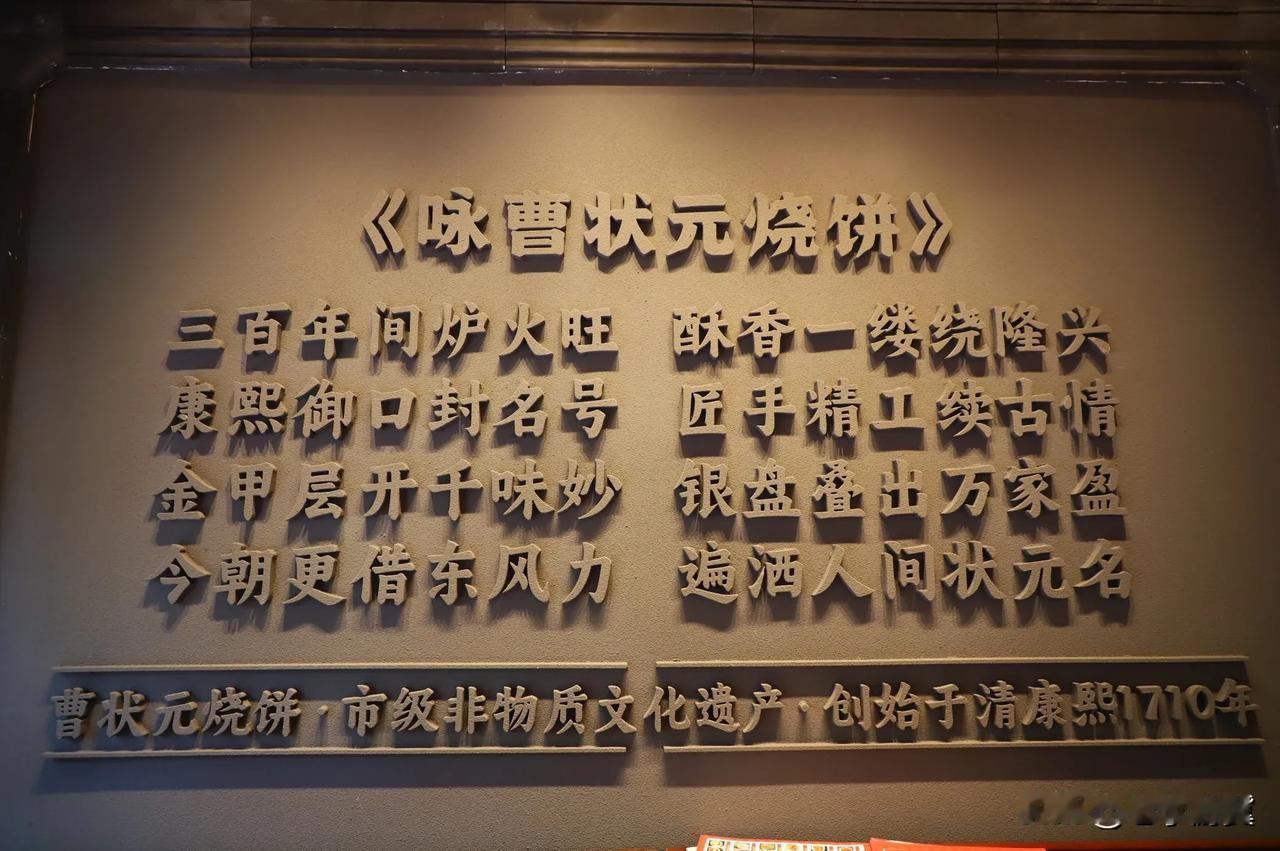 《咏曹状元烧饼》
三百年间炉火旺 酥香一缕绕隆兴
康熙御口封名号 匠手精工续古情
金甲层开千味妙 银盘叠出万家盈
今朝更借东风力 遍洒人间状元名
曹状元烧饼·市级非物质文化遗产·创始于清康熙1710年